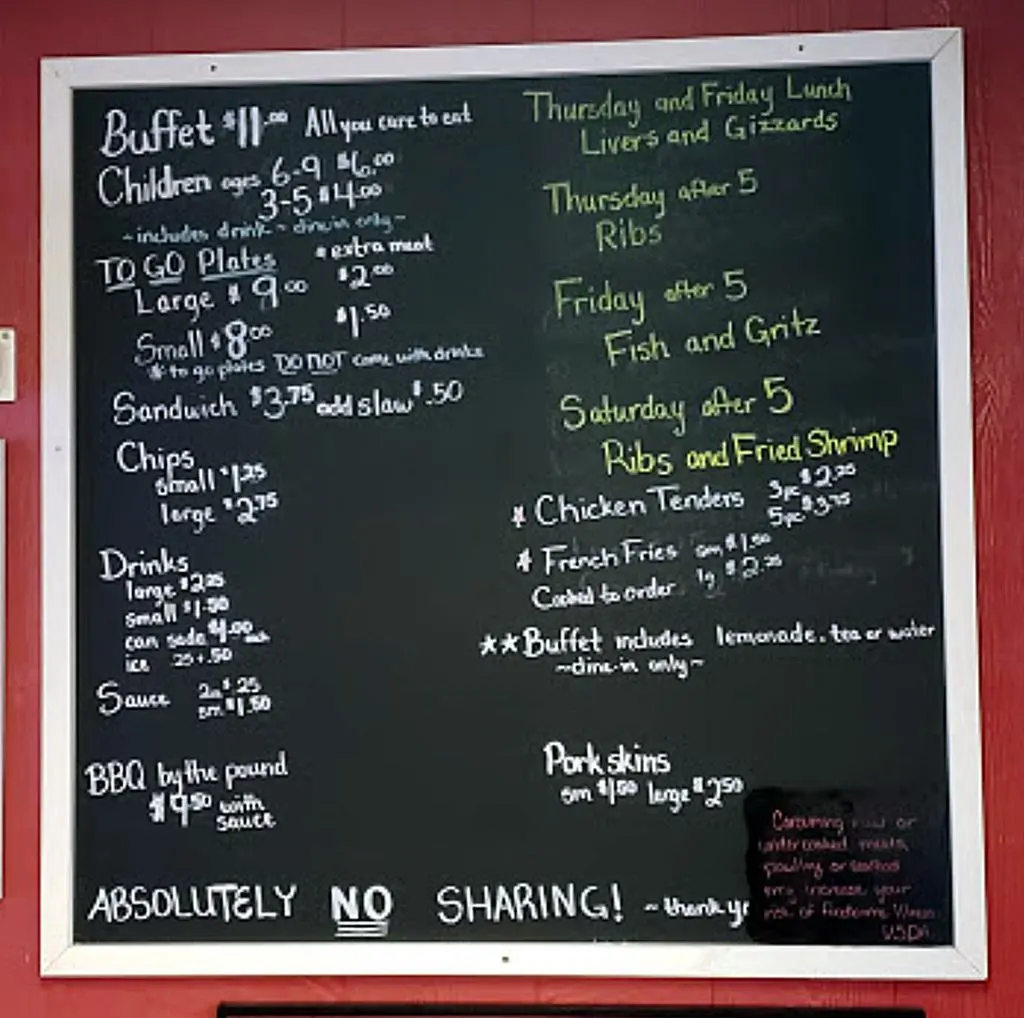 Buffet $11.00 All you care to eat
Children ages 6-9 $6.00
3-5 $4.00
~includes drink ~ dine in only~
TO GO Plates * extra meat
Large $9.00 $2.00
Small $8.00 $1.50
* to go plates DO NOT come with drinks
Sandwich $3.75 add slaw $.50
Chips
small $1.25
large $2.75
Drinks
large $2.25
small $1.50
can soda $1.00 each
ice .25 + .50
Sauce 2oz $.25
sm $1.50
BBQ by the pound
$9.50 with
sauce
Thursday and Friday Lunch
Livers and Gizzards
Thursday after 5
Ribs
Friday after 5
Fish and Gritz
Saturday after 5
Ribs and Fried Shrimp
* Chicken Tenders 3pc $2.25
5pc $3.75
* French Fries sm $1.50
Cooked to order lg $2.25
**Buffet includes lemonade, tea or water
~dine-in only~
Pork skins
sm $1.50 large $2.50
Consuming raw or
undercooked meats,
poultry or seafood
may increase your
risk of foodborne illness
USDA
ABSOLUTELY NO SHARING! ~thank